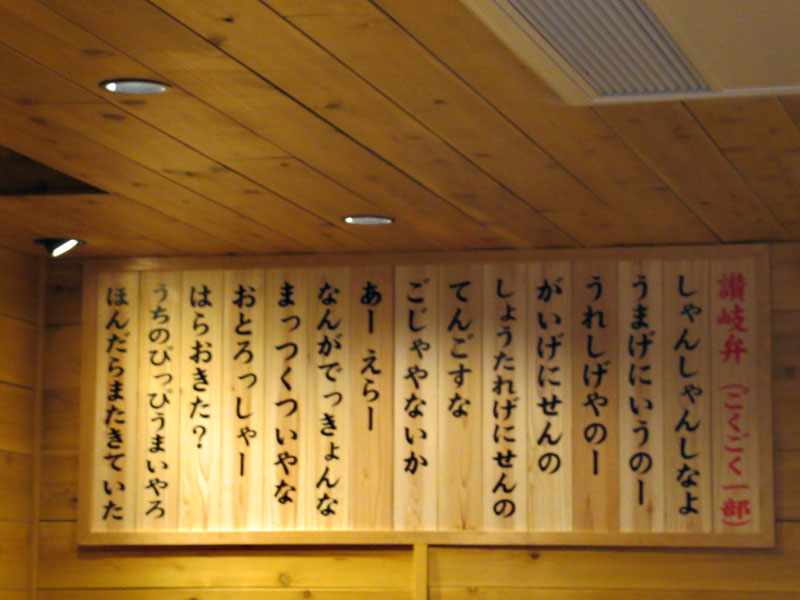 讃岐弁（ごくごく一部）
しゃんしゃんしなよ
うまげにいうのー
うれしげやのー
がいげにせんの
しょうたれげにせんの
てんごすな
ごじゃやないか
あー えらー
なんがでっきょんな
まっつくついやな
おとろっしゃー
はらおきた？
うちのぴっぴうまいやろ
ほんだらまたきていた